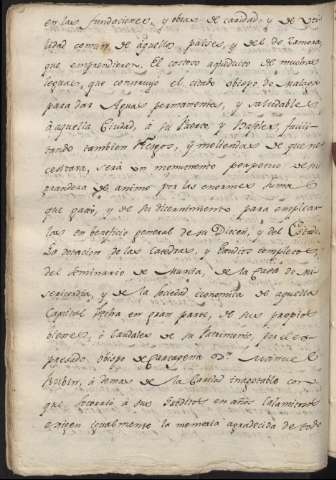 en las fundaciones, y obras de caridad, y de uti
lidad comun de aquellos paises, y del de Zamora
que emprendieron. El costoso aqüeducto de muchas
leguas, que construyó el citado obispo de Malaga
para dar Aguas permanentes, y saludables
à aquella Ciudad, à su Puerto, y Baxeles, facili
tando tambien Riegos, y moliendas de que ne
cesitava, será un monumento perpetuo de su
grandeza de animo por las enormes sumas
que gastó, y de su dicernimiento para emplear
las en beneficio general de su Diocesi, y del Estado.
La dotacion de las Catedras, y Estudios completos
del seminario de Murcia, de la Casa de Mi
sericordia, y de la sociedad economica de aquella
Capital hecha en gran parte, de sus propios
bienes, ò caudales de su Patrimonio, por el ex
presado obispo de Cartagena Dn. Manuel
Rubin, à demas de la Caridad inagotable con
que socorrió à sus Subditos en años calamitosos
exigen igualmente la memoria agradecida de todo